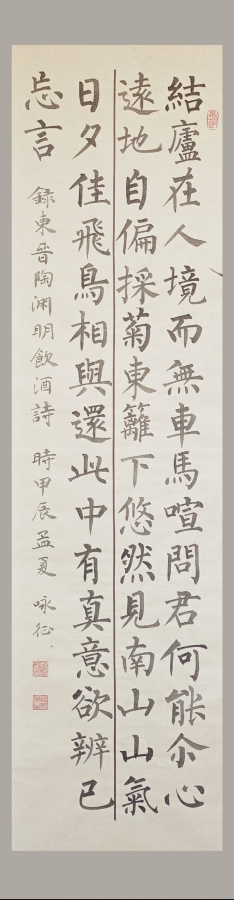 結廬在人境而無車馬喧問君何能尒心
遠地自偏採菊東籬下悠然見南山山氣
日夕佳飛鳥相與還此中有真意欲辨已
忘言
錄東晉陶渊明飲酒詩 時甲辰孟夏 咏征